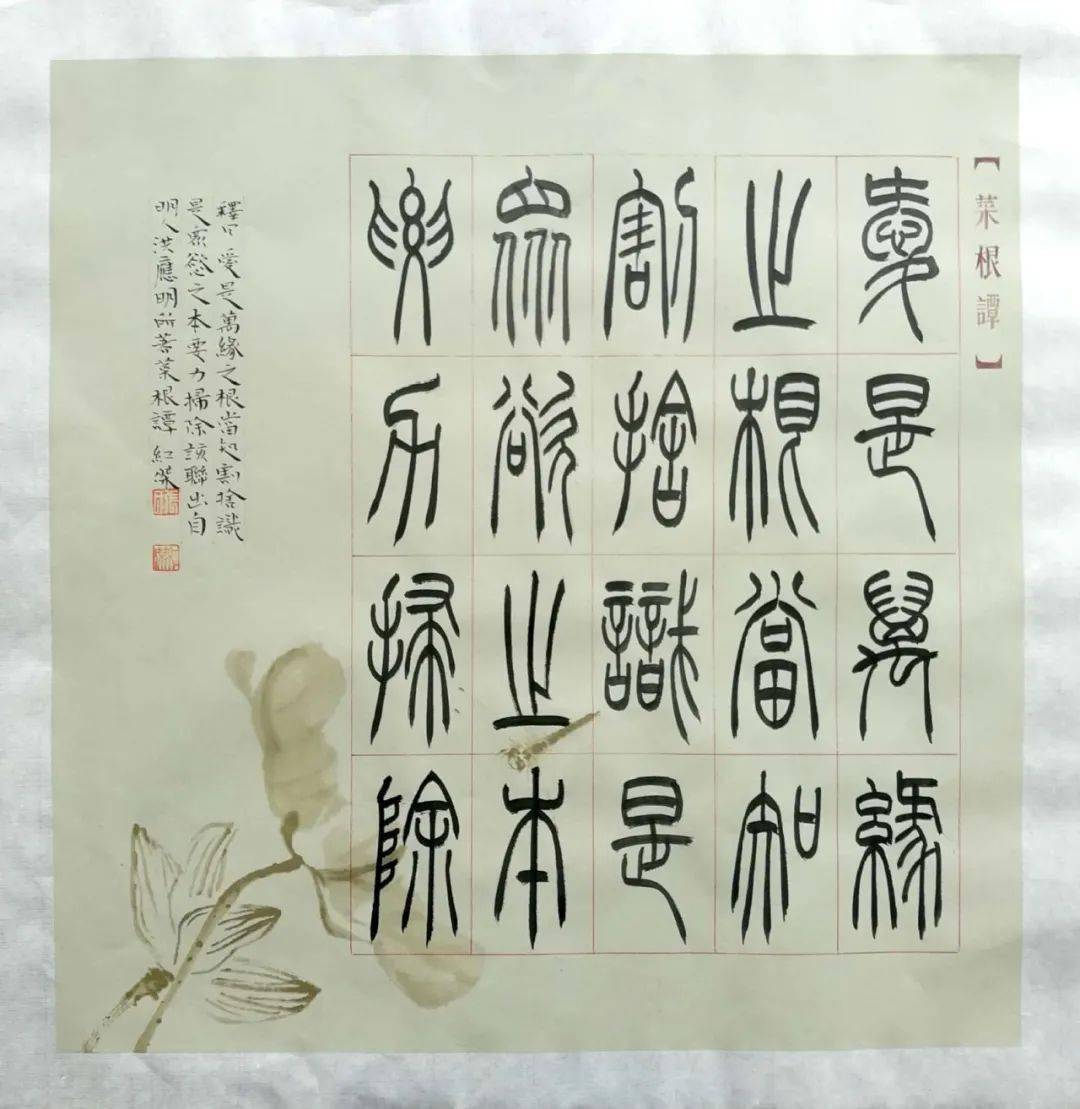 【菜根譚】
愛是萬緣
之根當知
割捨識是
眾欲之本
要力掃除
釋曰愛是萬緣之根當知割捨識
是衆慾之本要力掃除該聯出自
明人洪應明所著菜根譚